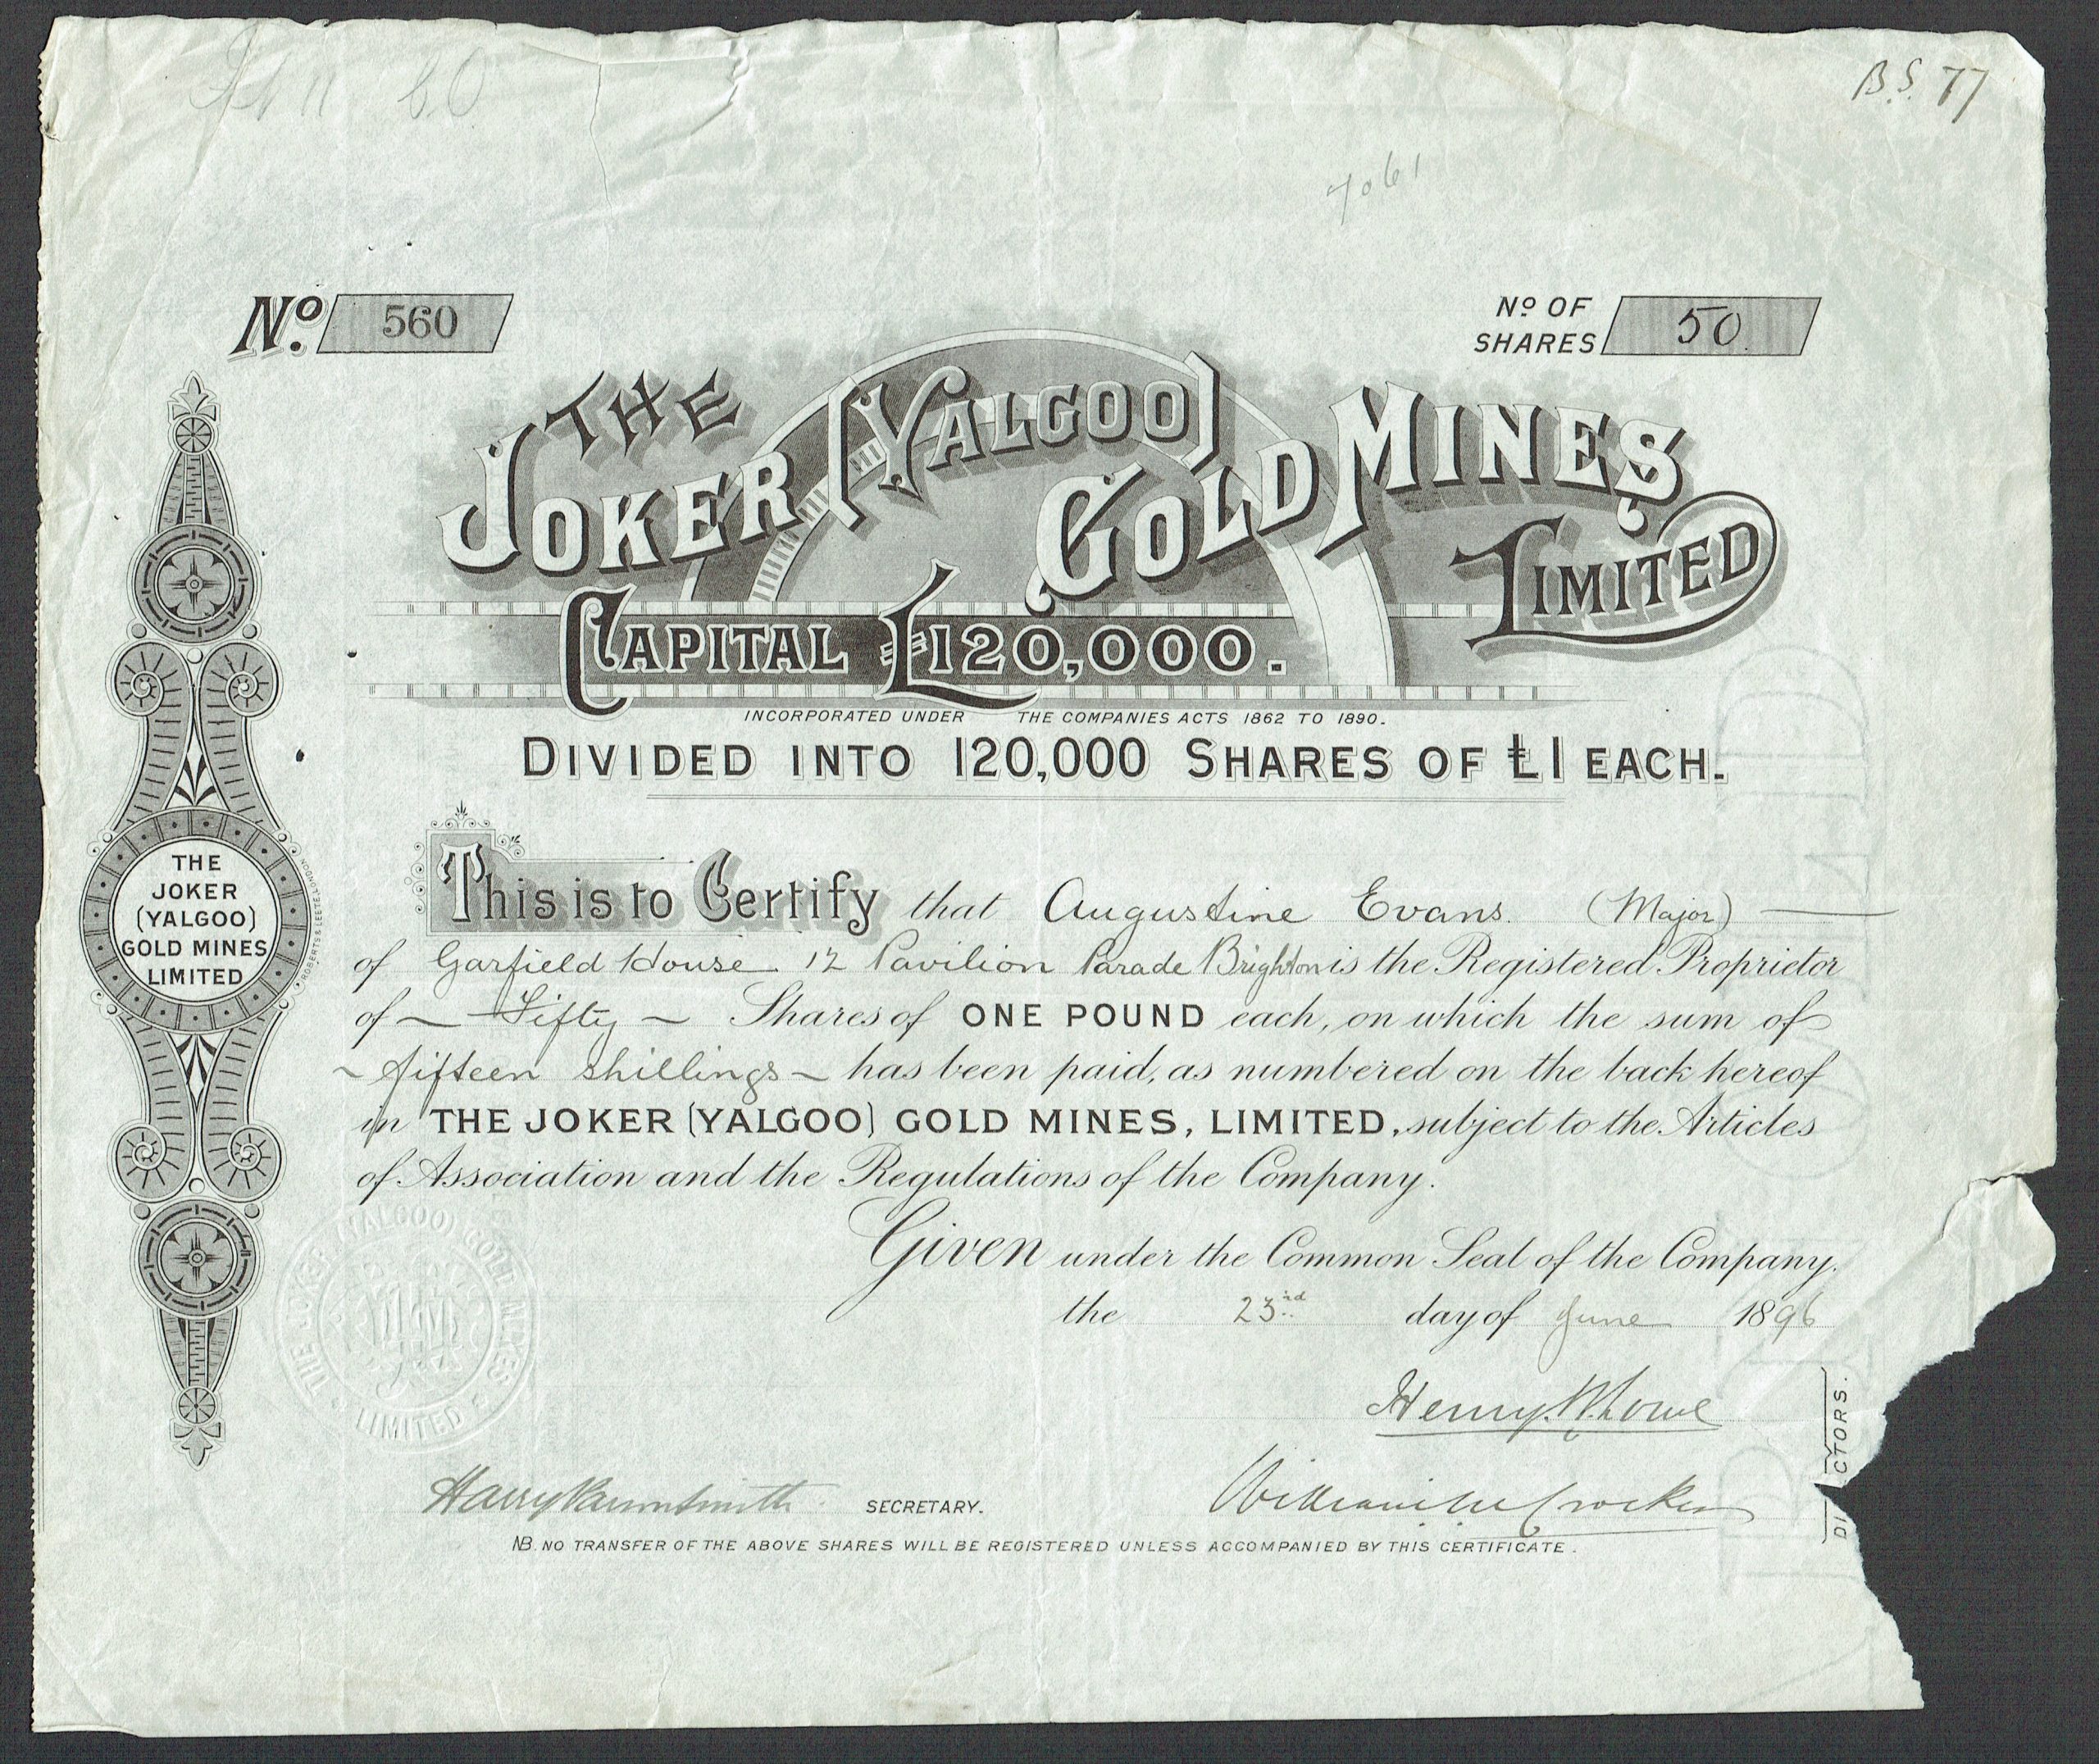 B.S. 77
7061
No. 560
No OF SHARES 50
THE
JOKER (YALGOO) GOLD MINES
LIMITED
CAPITAL £120,000.
INCORPORATED UNDER THE COMPANIES ACTS 1862 TO 1890.
DIVIDED INTO 120,000 SHARES OF £1 EACH.
This is to Certify that Augustine Evans. (Major)
of Garfield House 12 Pavilion Parade Brighton is the Registered Proprietor
of ~ Fifty ~ Shares of ONE POUND each, on which the sum of
~ fifteen shillings ~ has been paid, as numbered on the back hereof
in THE JOKER (YALGOO) GOLD MINES, LIMITED, subject to the Articles
of Association and the Regulations of the Company.
Given under the Common Seal of the Company.
the 23rd day of June 1896
THE
JOKER
(YALGOO)
GOLD MINES
LIMITED
ROBERTS & LEETE, LONDON
THE JOKER (YALGOO) GOLD MINES LIMITED
Henry Lowe
William Crocker
DI CTORS.
Harry SECRETARY.
NB. NO TRANSFER OF THE ABOVE SHARES WILL BE REGISTERED UNLESS ACCOMPANIED BY THIS CERTIFICATE.